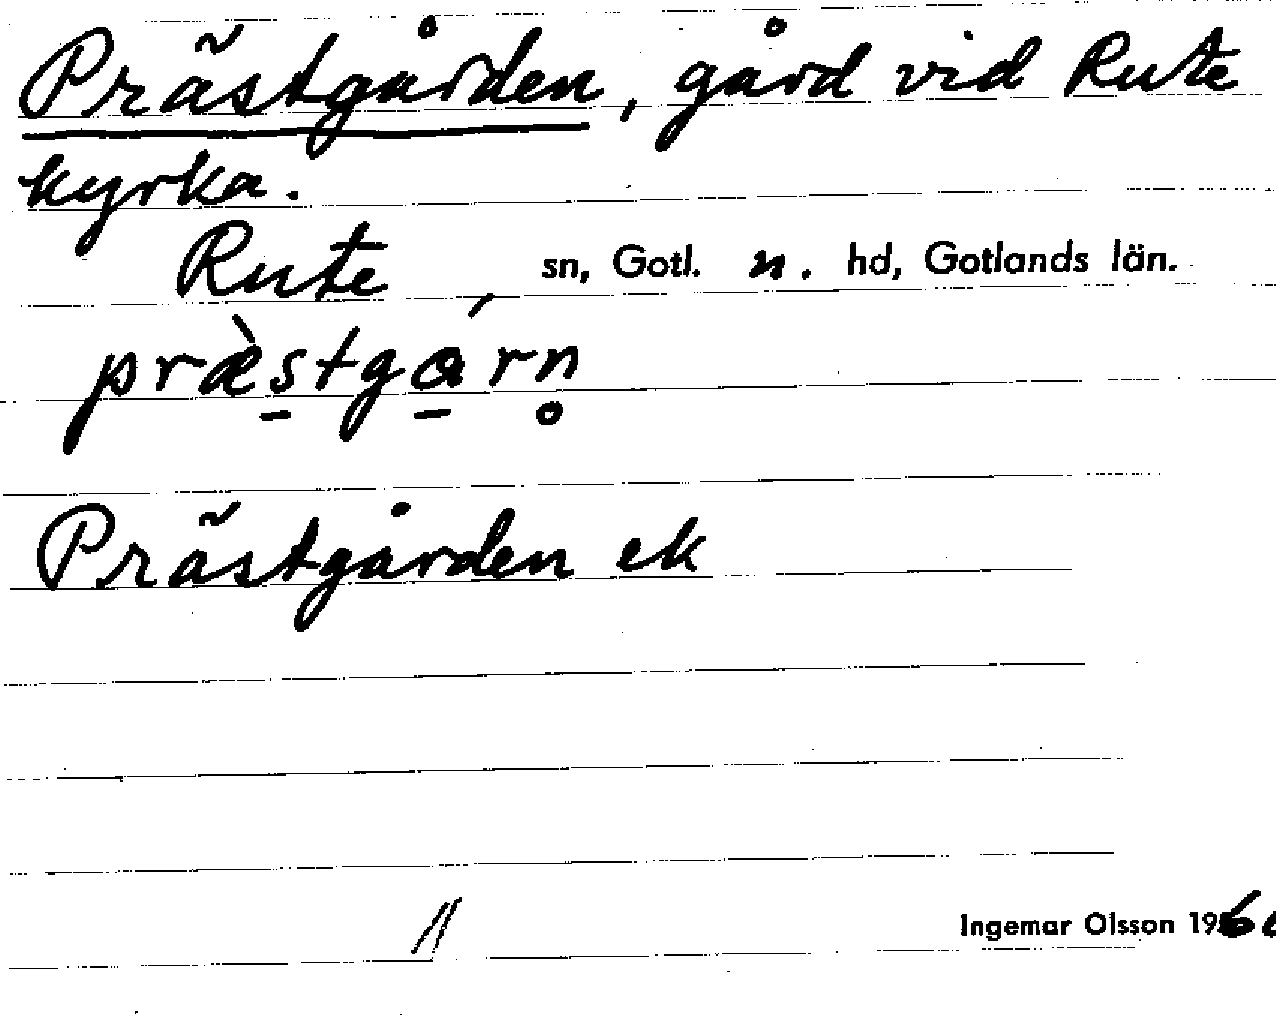 Prästgården, gård vid Rute
kyrka.
Rute, sn, Gotl. n. hd, Gotlands län.
præ̀s̠tgá̠rn̥
Prästgården ek
Ingemar Olsson 196